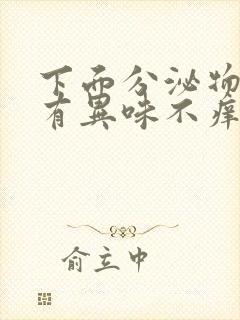 下面分泌物
有異味不痒
俞立中